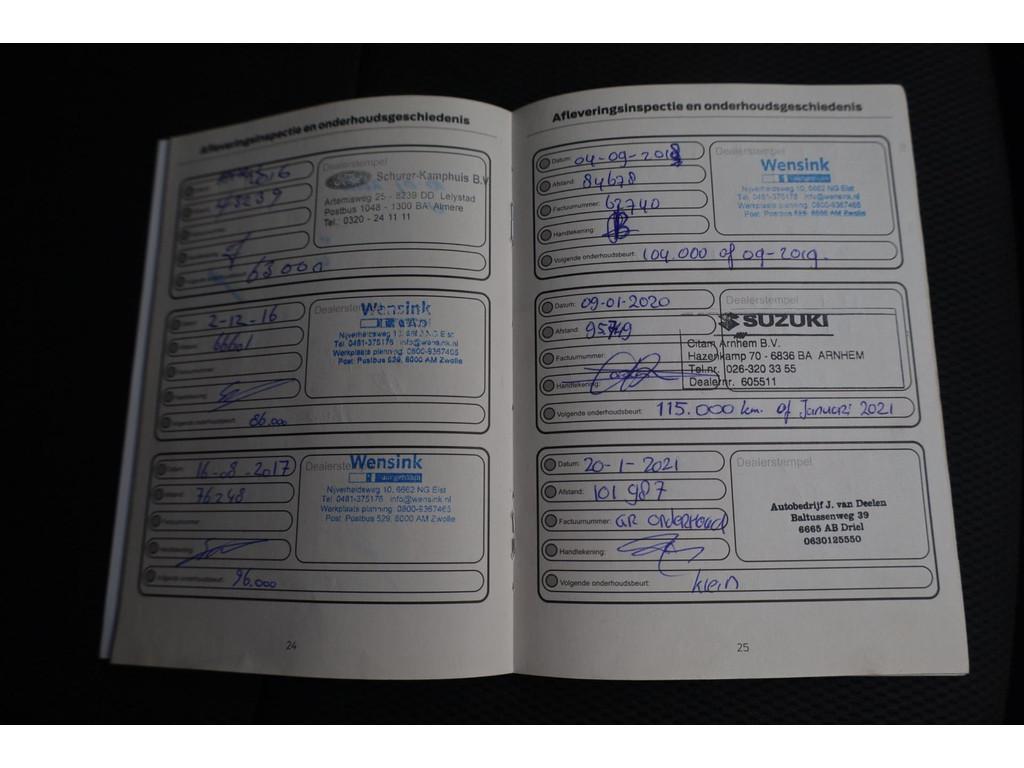 Afleveringsinspectie en onderhoudsgeschiedenis
Dealerstempel
Ford
Schurer-Kamphuis B.V.
Artemisweg 25 - 8239 DD Lelystad
Postbus 1048 - 1300 BA Almere
Tel.: 0320 - 24 11 11
48239
68000
Datum: 2-12-16
66601
86.000
Dealerstempel
Wensink
Nijverheidsweg 10, 6662 NG Elst
Tel. 0481-375176 info@wensink.nl
Werkplaats planning: 0800-9367465
Post: Postbus 529, 8000 AM Zwolle
Datum: 16-08-2017
Afstand: 76248
Factuurnummer:
Handtekening:
Volgende onderhoudsbeurt: 96.000
Dealerstempel
Wensink
Nijverheidsweg 10, 6662 NG Elst
Tel. 0481-375176 info@wensink.nl
Werkplaats planning: 0800-9367465
Post: Postbus 529, 8000 AM Zwolle
24
Afleveringsinspectie en onderhoudsgeschiedenis
Datum: 04-09-2018
Afstand: 84678
Factuurnummer: 62740
Handtekening:
Volgende onderhoudsbeurt: 104.000 of 09-2019.
Dealerstempel
Wensink
Nijverheidsweg 10, 6662 NG Elst
Tel. 0481-375176 info@wensink.nl
Werkplaats planning: 0800-9367465
Post: Postbus 529, 8000 AM Zwolle
Datum: 09-01-2020
Afstand: 95749
Factuurnummer:
Handtekening:
Volgende onderhoudsbeurt: 115.000 km. of Januari 2021
Dealerstempel
SUZUKI
Citam Arnhem B.V.
Hazenkamp 70 - 6836 BA ARNHEM
Tel.nr. 026-320 33 55
Dealernr. 605511
Datum: 20-1-2021
Afstand: 101987
Factuurnummer: GR onderhoud
Handtekening:
Volgende onderhoudsbeurt: klein
Dealerstempel
Autobedrijf J. van Deelen
Baltussenweg 39
6665 AB Driel
0630125550
25